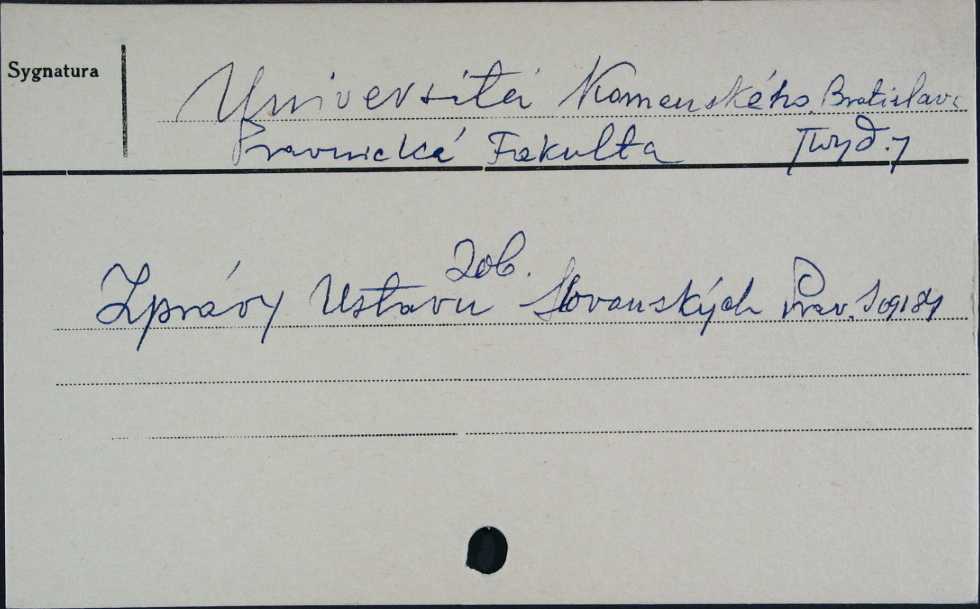 Sygnatura
Universitá Komenského, Bratislava
Pravnická Fakulta
Zob.
Zprávy Ustavu Slovanských Prav.